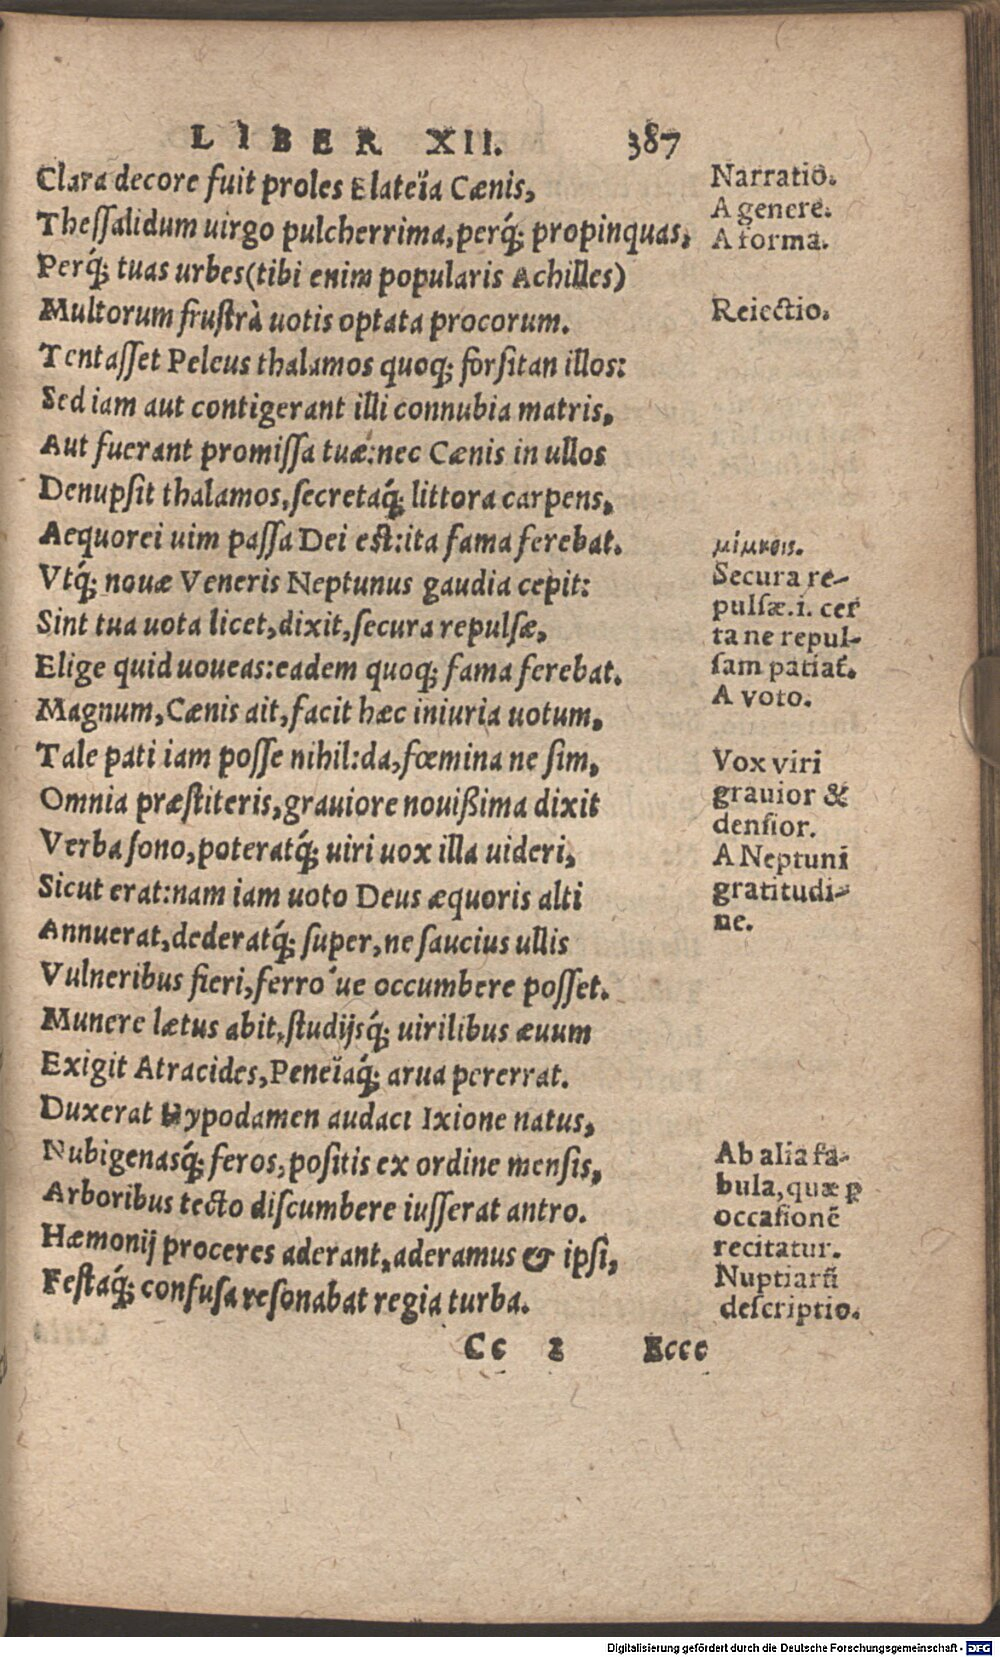 LIBER XII. 387
Clara decore fuit proles Elateïa Cænis,
Theſſalidum uirgo pulcherrima, perq́; propinquas,
Perq́; tuas urbes (tibi enim popularis Achilles)
Multorum fruſtrà uotis optata procorum.
Tentaſſet Peleus thalamos quoq; forſitan illos:
Sed iam aut contigerant illi connubia matris,
Aut fuerant promiſſa tuæ: nec Cænis in ullos
Denupſit thalamos, ſecretaq́; littora carpens,
Aequorei uim paſſa Dei eſt: ita fama ferebat.
Vtq́; nouæ Veneris Neptunus gaudia cepit:
Sint tua uota licet, dixit, ſecura repulſæ,
Elige quid uoueas: eadem quoq; fama ferebat.
Magnum, Cænis ait, facit hæc iniuria uotum,
Tale pati iam poſſe nihil: da, fœmina ne ſim,
Omnia præſtiteris, grauiore nouißima dixit
Verba ſono, poteratq́; uiri uox illa uideri,
Sicut erat: nam iam uoto Deus æquoris alti
Annuerat, dederatq́; ſuper, ne ſaucius ullis
Vulneribus fieri, ferro'ue occumbere poſſet.
Munere lætus abit, ſtudijsq́; uirilibus æuum
Exigit Atracides, Peneïaq́; arua pererrat.
Duxerat Hypodamen audaci Ixione natus,
Nubigenasq́; feros, poſitis ex ordine menſis,
Arboribus tecto diſcumbere iuſſerat antro.
Hæmonij proceres aderant, aderamus & ipſi,
Feſtaq́; confuſa reſonabat regia turba.
Cc 2 Ecce
Narratio.
A genere.
A forma.
Reiectio.
μίμησις.
Secura re-
pulſæ.i. cer
ta ne repul-
ſam patiat̃.
A voto.
Vox viri
grauior &
denſior.
A Neptuni
gratitudi-
ne.
Ab alia fa-
bula, quæ ꝑ
occaſionē
recitatur.
Nuptiarū
deſcriptio.
Digitalisierung gefördert durch die Deutsche Forschungsgemeinschaft - DFG